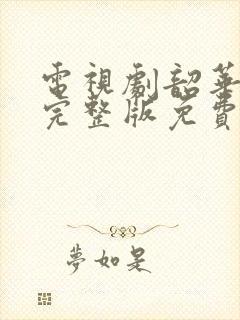 電視劇韶華
完整版免費
夢如是